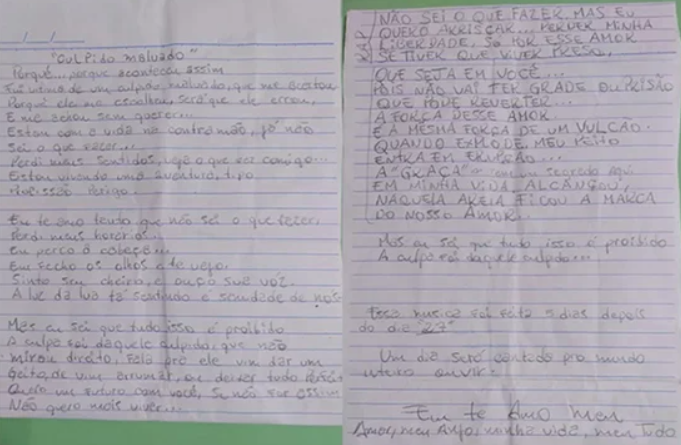 "CULPIDO malvado"
Porquê... porque aconteceu assim
Fui vitima de um culpido malvado, que me acertou
Porquê ele me escolheu, será que ele errou,
E me achou sem querer...
Estou com a vida na contra mão, já não
Sei o que fazer...
Perdi meus sentidos, veja o que fez comigo...
Estou vivendo uma aventura, tipo
missão Perigo.
Eu te amo tanto que não sei o que fazer,
Perdi meus horários...
Eu perco a cabeça...
Eu fecho os olhos e te vejo.
Sinto seu cheiro, e ouço sua voz.
A luz da lua tá sentindo a saudade de nós
Mas eu sei que tudo isso é proibido
A culpa foi daquele culpido, que não
mirou direito, fala pra ele vim dar um
Jeito, de vim arrumar, ou deixar tudo
Quero um futuro com você, se não for assim
Não quero mais viver...
NÃO SEI O QUE FAZER, MAS EU
QUERO ARRISCAR... PERDER MINHA
LIBERDADE, SÓ POR ESSE AMOR
SE TIVER QUE VIVER PRESO,
QUE SEJA EM VOCÊ...
POIS NÃO VAI TER GRADE OU PRISÃO
QUE PODE REVERTER...
A FORÇA DESSE AMOR
É A MESMA FORÇA DE UM VULCÃO.
QUANDO EXPLODE, MEU PEITO
ENTRA EM ERUPÇÃO...
A "GRAÇA" tem um segredo aqui
EM MINHA VIDA, ALCANÇOU,
NAQUELA AREIA FICOU A MARCA
DO NOSSO AMOR...
Mas eu sei que tudo isso é proibido
A culpa foi daquele culpido...
Essa musica foi feita 5 dias depois
do dia "27"
Um dia será cantada pro mundo
inteiro ouvir.
Eu te Amo meu
Amor, meu Anjo, minha vida, meu Tudo